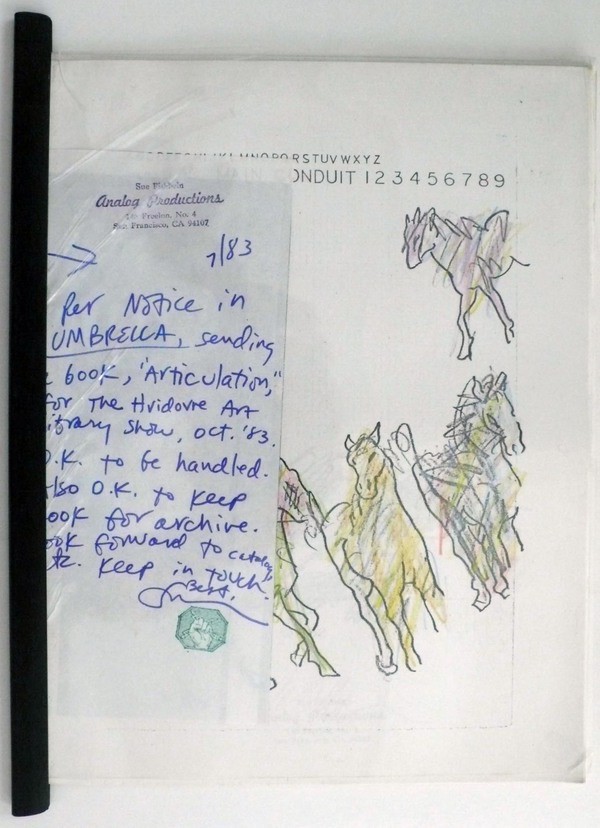 MNOPQRSTUVWXYZ
CONDUIT 1 2 3 4 5 6 7 8 9
Analog Productions
No. 4
San Francisco, CA 94107
7/83
Per Notice in
UMBRELLA, sending
book, "Articulation,"
for the Hvidovre Art
ibrary Show, Oct. '83.
O.K. to be handled.
lso O.K. to keep
ook for archive.
ook forward to catalog,
tc. Keep in touch.
Best,